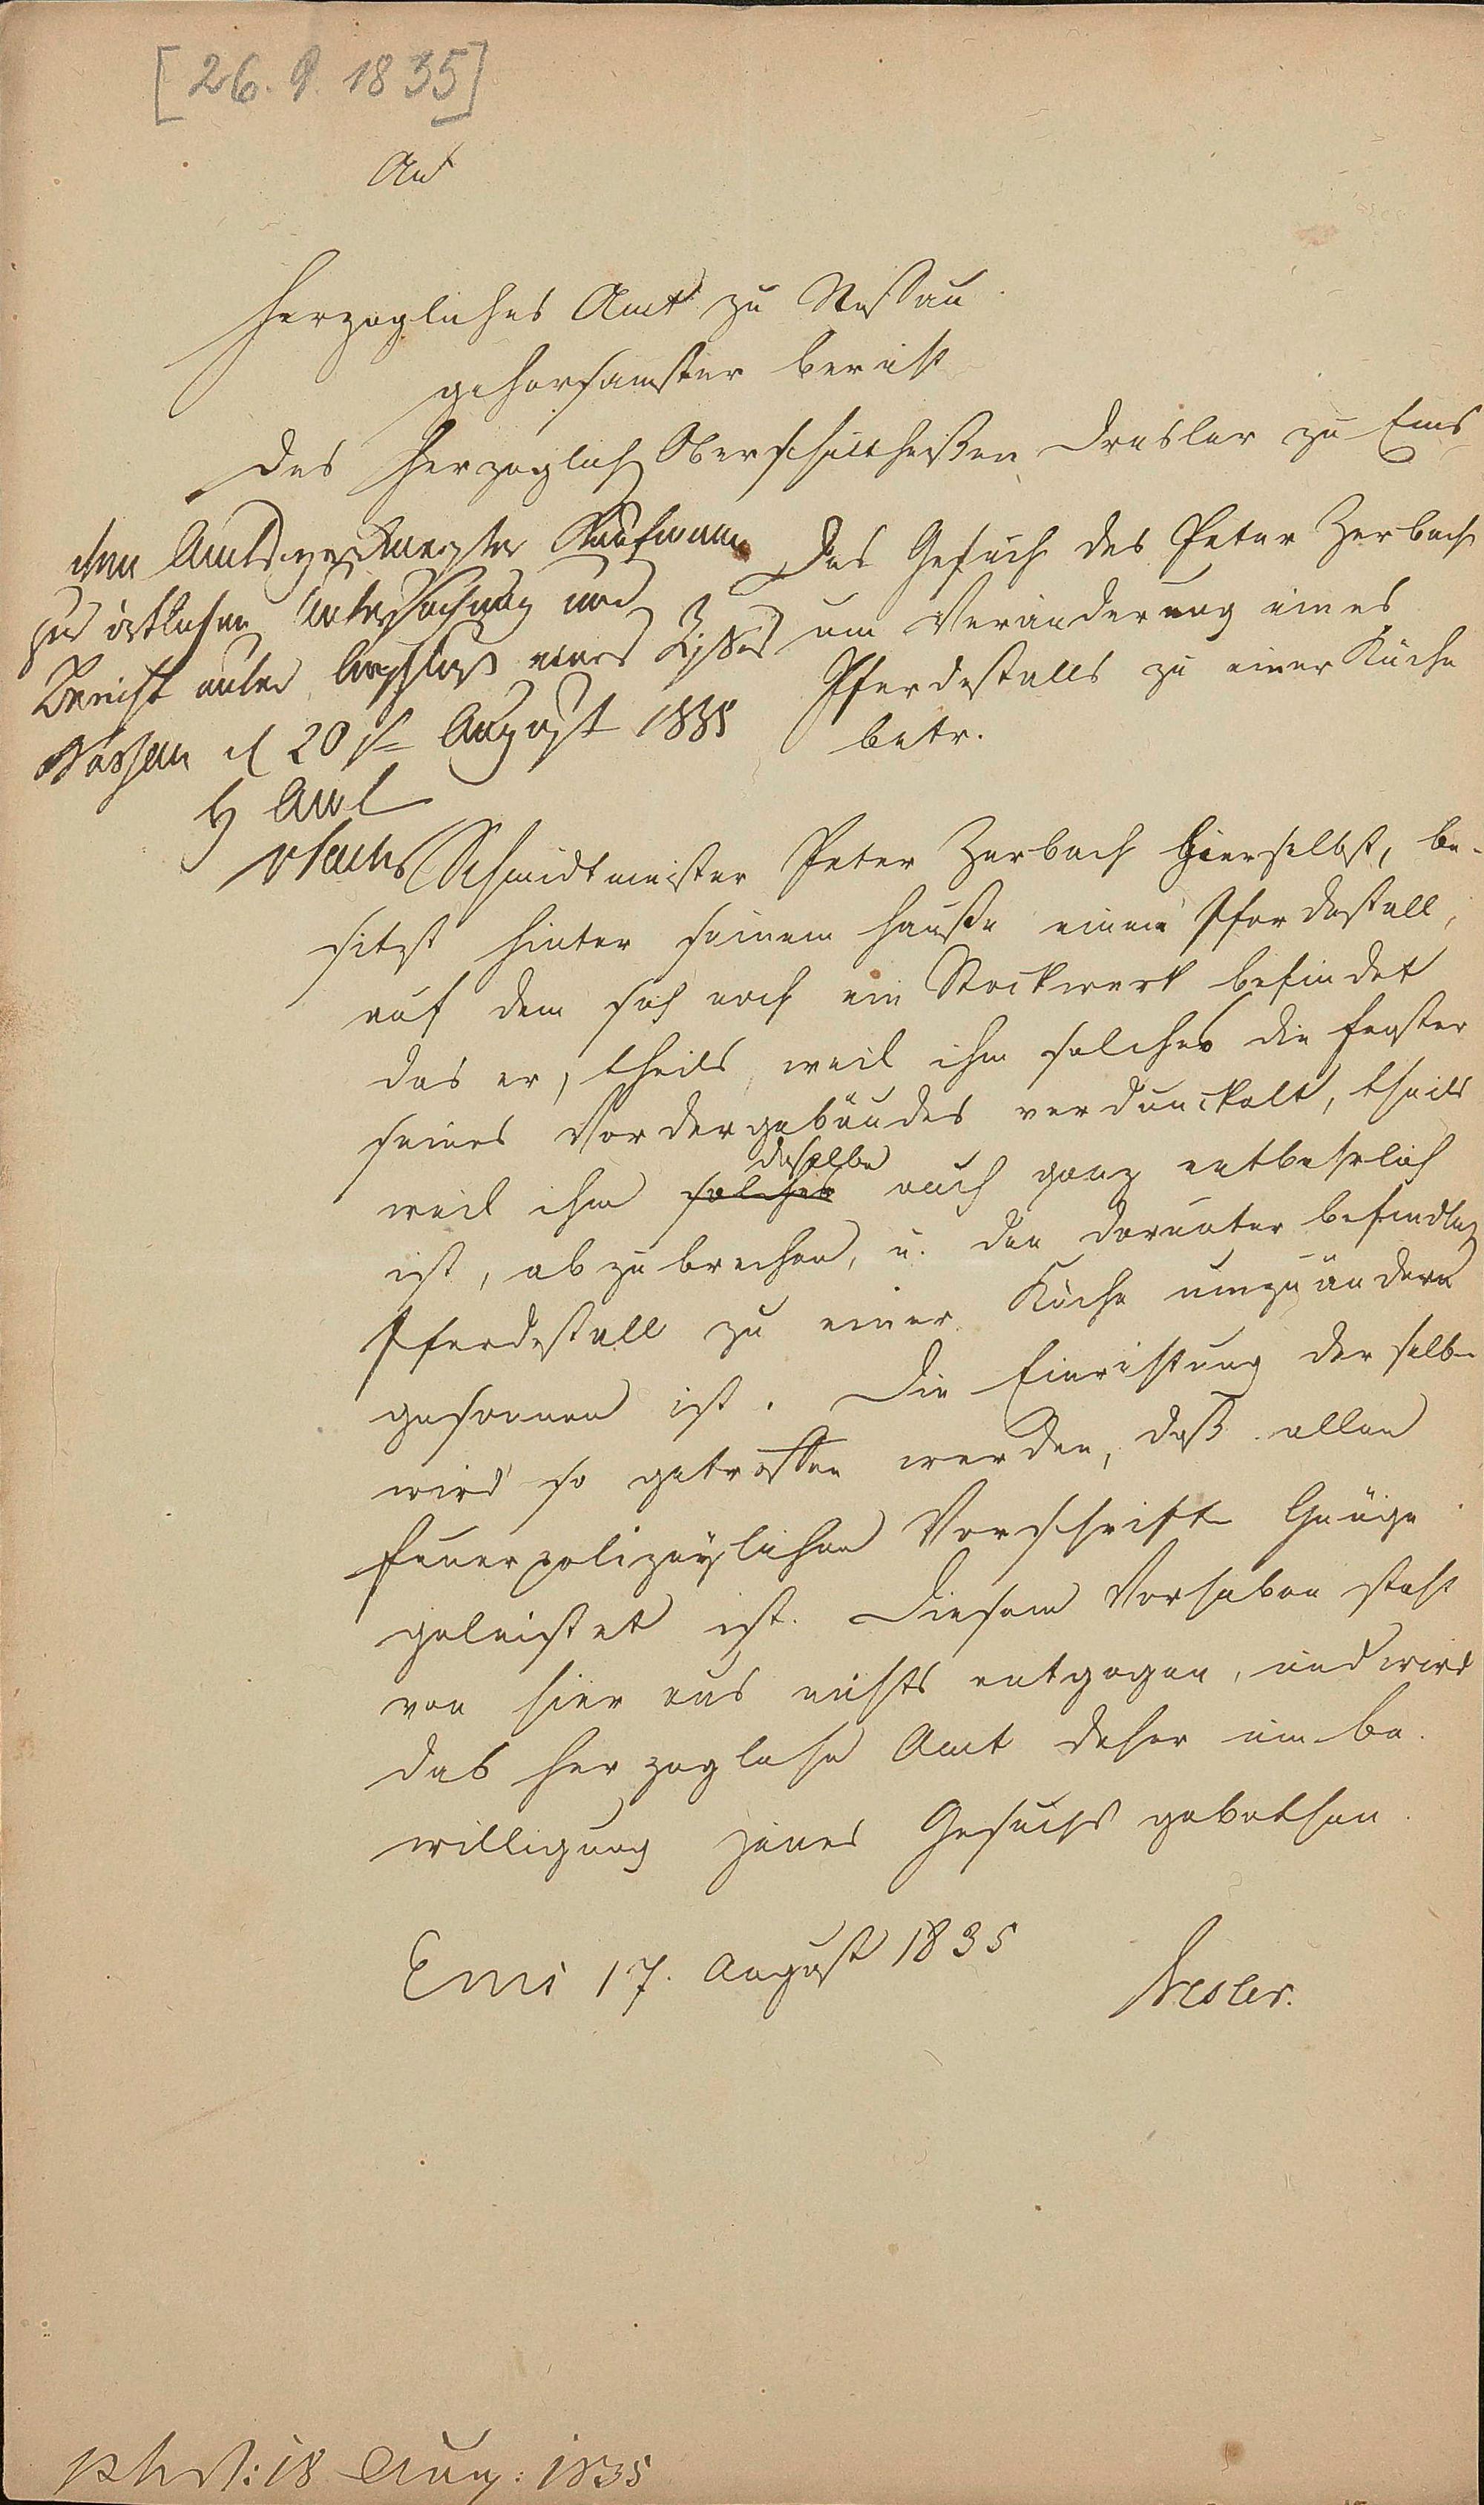 [26. 9. 1835]
An
Herzogliches Amt zu Nassau
gehorsamster Bericht
des Herzoglich Oberschultheißen Dresler zu Ems
Das Gesuch des Peter Zerbach
um Veränderung eines
Pferdestalls zu einer Küche
betr.
dem Amtswerkmeister Kaufmann
zur örtlichen Untersuchung und
Bericht unter Anschluß eines Risses
Nassau d 20st August 1835
H Amt
Schmidtmeister Peter Zerbach hierselbst, be-
sitzt hinter seinem Hauße einen Pferdestall,
auf dem sich noch ein Stockwerk befindet
das er, theils weil ihm solches die Fenster
seines Vordergebäudes verdunckelt, theils
weil ihm solches dasselbe auch ganz entbehrlich
ist, abzubrechen, u. den darunter befindlich
Pferdestall zu einer Küche umzuändern
gesonnen ist. Die Einrichtung derselben
wird so getroffen werden, daß allen
feuerpolizeylichen Vorschriften Genüge
geleistet ist. Diesem Vorhaben steht
von hier aus nichts entgegen, und wird
das Herzogliche Amt daher um Be-
willigung jenes Gesuchs gebethen.
Ems 17. August 1835
Dresler.
18 Aug: 1835